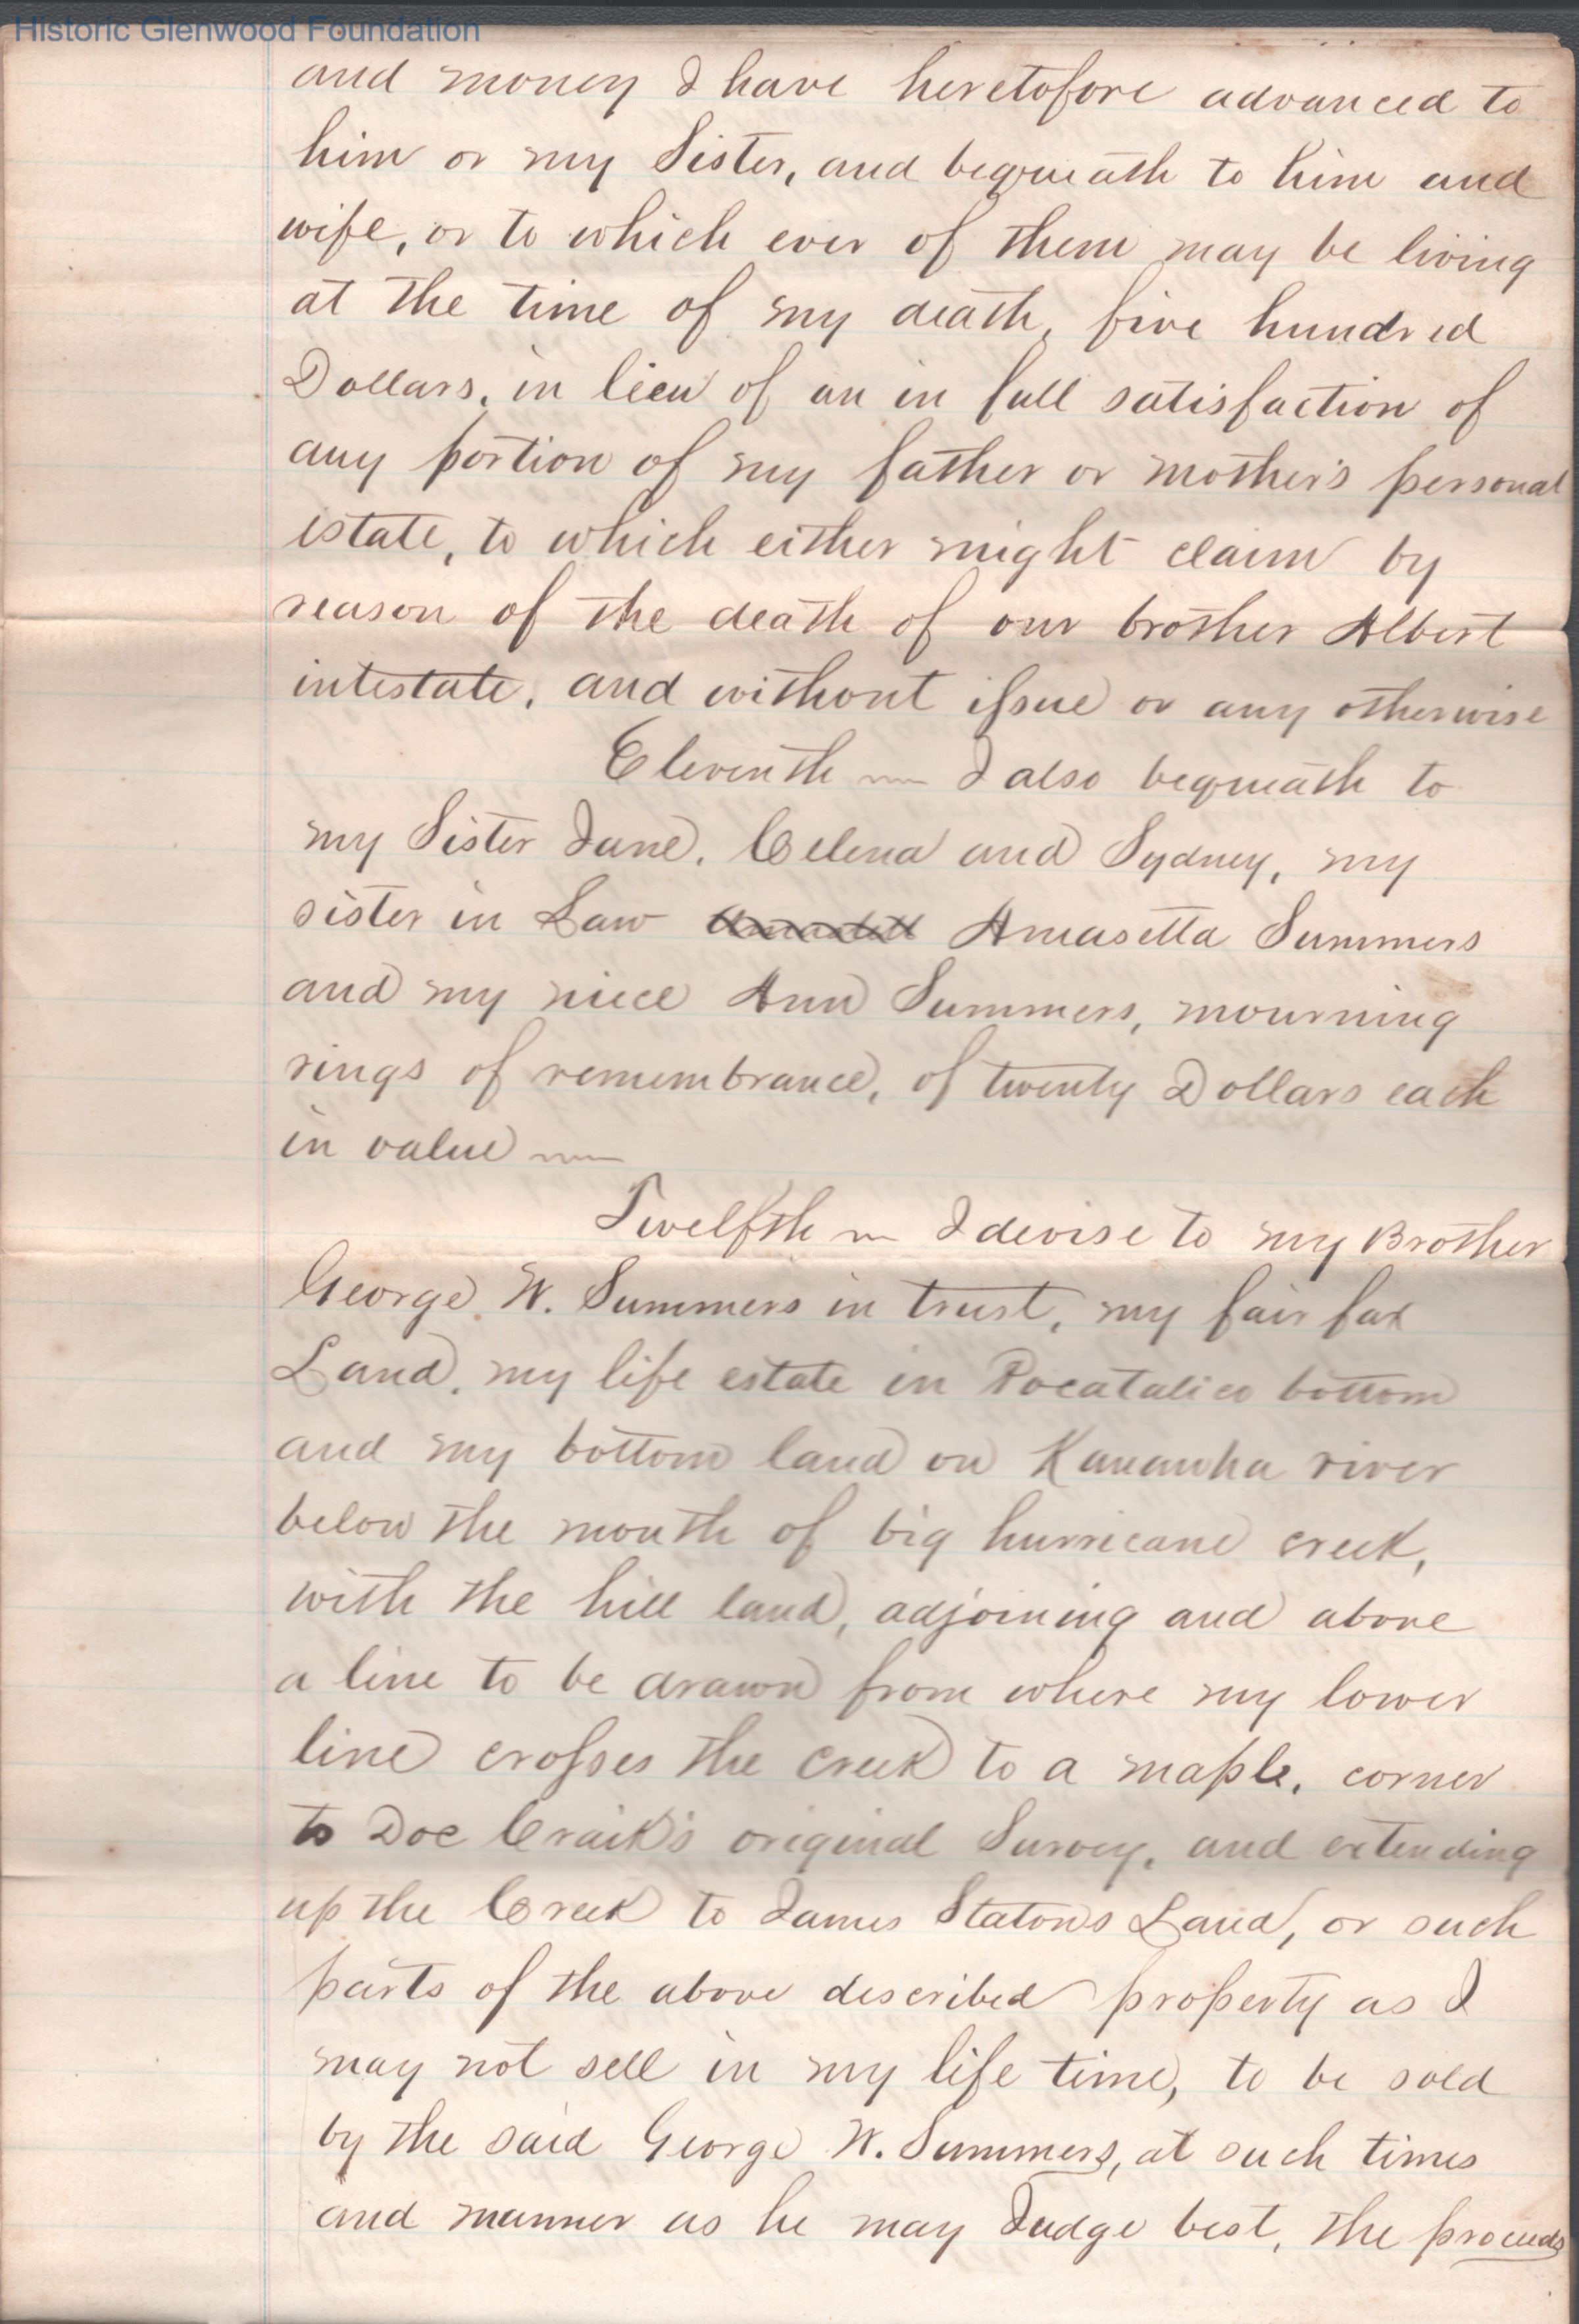 Historic Glenwood Foundation
and money I have heretofore advanced to
him or my Sister, and bequeath to him and
wife, or to which ever of them may be living
at the time of my death, five hundred
Dollars, in lieu of an in full satisfaction of
any portion of my father or mother's personal
estate, to which either might claim by
reason of the death of our brother Albert
intestate, and without issue or any otherwise
Eleventh — I also bequeath to
my Sister Jane, Celena and Sydney, my
sister in Law Amasetta Summers
and my niece Ann Summers, mourning
rings of remembrance, of twenty Dollars each
in value —
Twelfth — I devise to my Brother
George W. Summers in trust, my fair fax
Land, my life estate in Pocatalico bottom
and my bottom land on Kanawha river
below the mouth of big hurricane creek,
with the hill land, adjoining and above
a line to be drawn from where my lower
line crosses the creek to a maple, corner
to Doc Craik's original Survey, and extending
up the Creek to James Statons Land, or such
parts of the above described property as I
may not sell in my life time, to be sold
by the said George W. Summers, at such times
and manner as he may Judge best, the proceeds